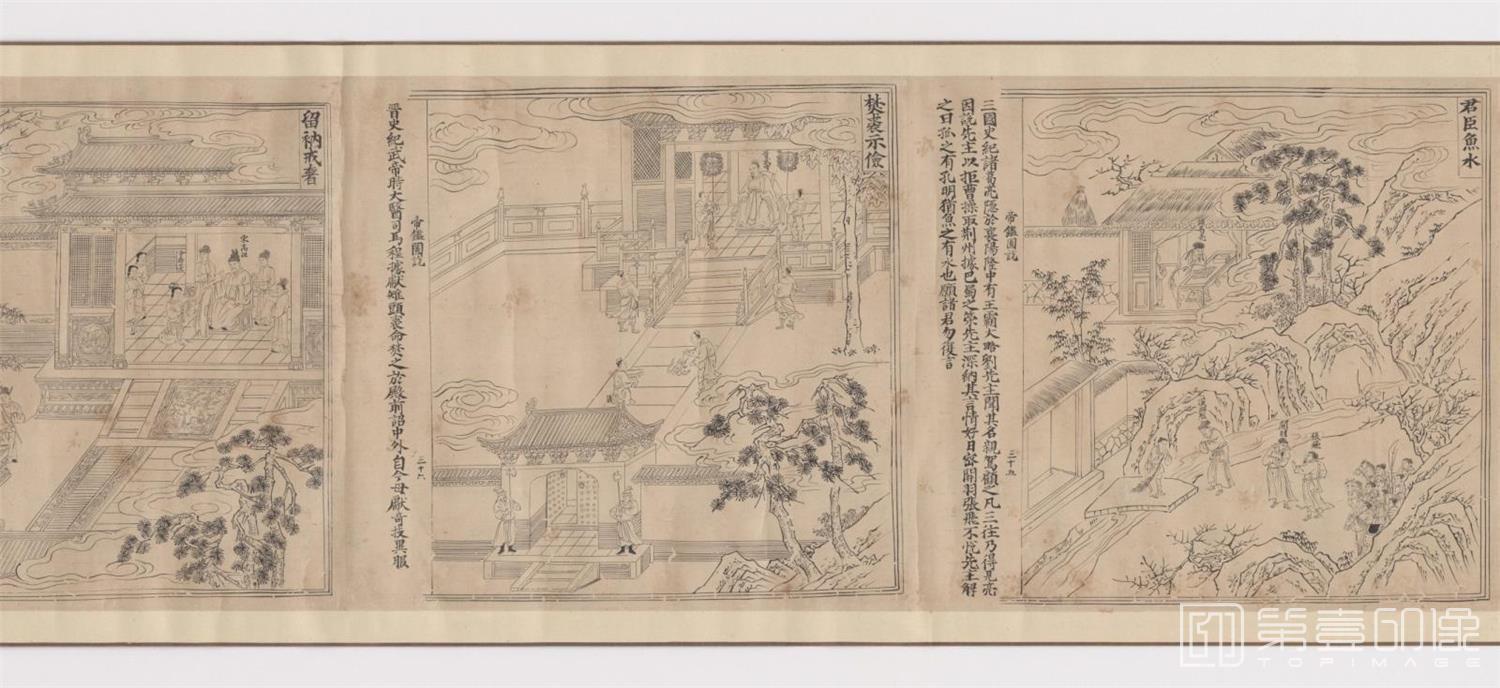 君臣魚水
諸葛亮
關羽
張飛
三國史紀諸葛亮隱於襄陽隆中有王霸大略劉先主聞其名親駕顧之凡三往乃得見亮
因說先主以拒曹操取荆州據巴蜀之策先主深納其言情好日密關羽張飛不悅先主解
之曰孤之有孔明猶魚之有水也願諸君勿復言
帝鑑圖說
三十五
焚裘示儉
晉史紀武帝時大醫司馬程據獻雉頭裘命焚之於殿前詔中外自今毋獻奇技異服
帝鑑圖說
三十六
留衲戒奢
宋高祖
第壹印像
TOPIMAGE